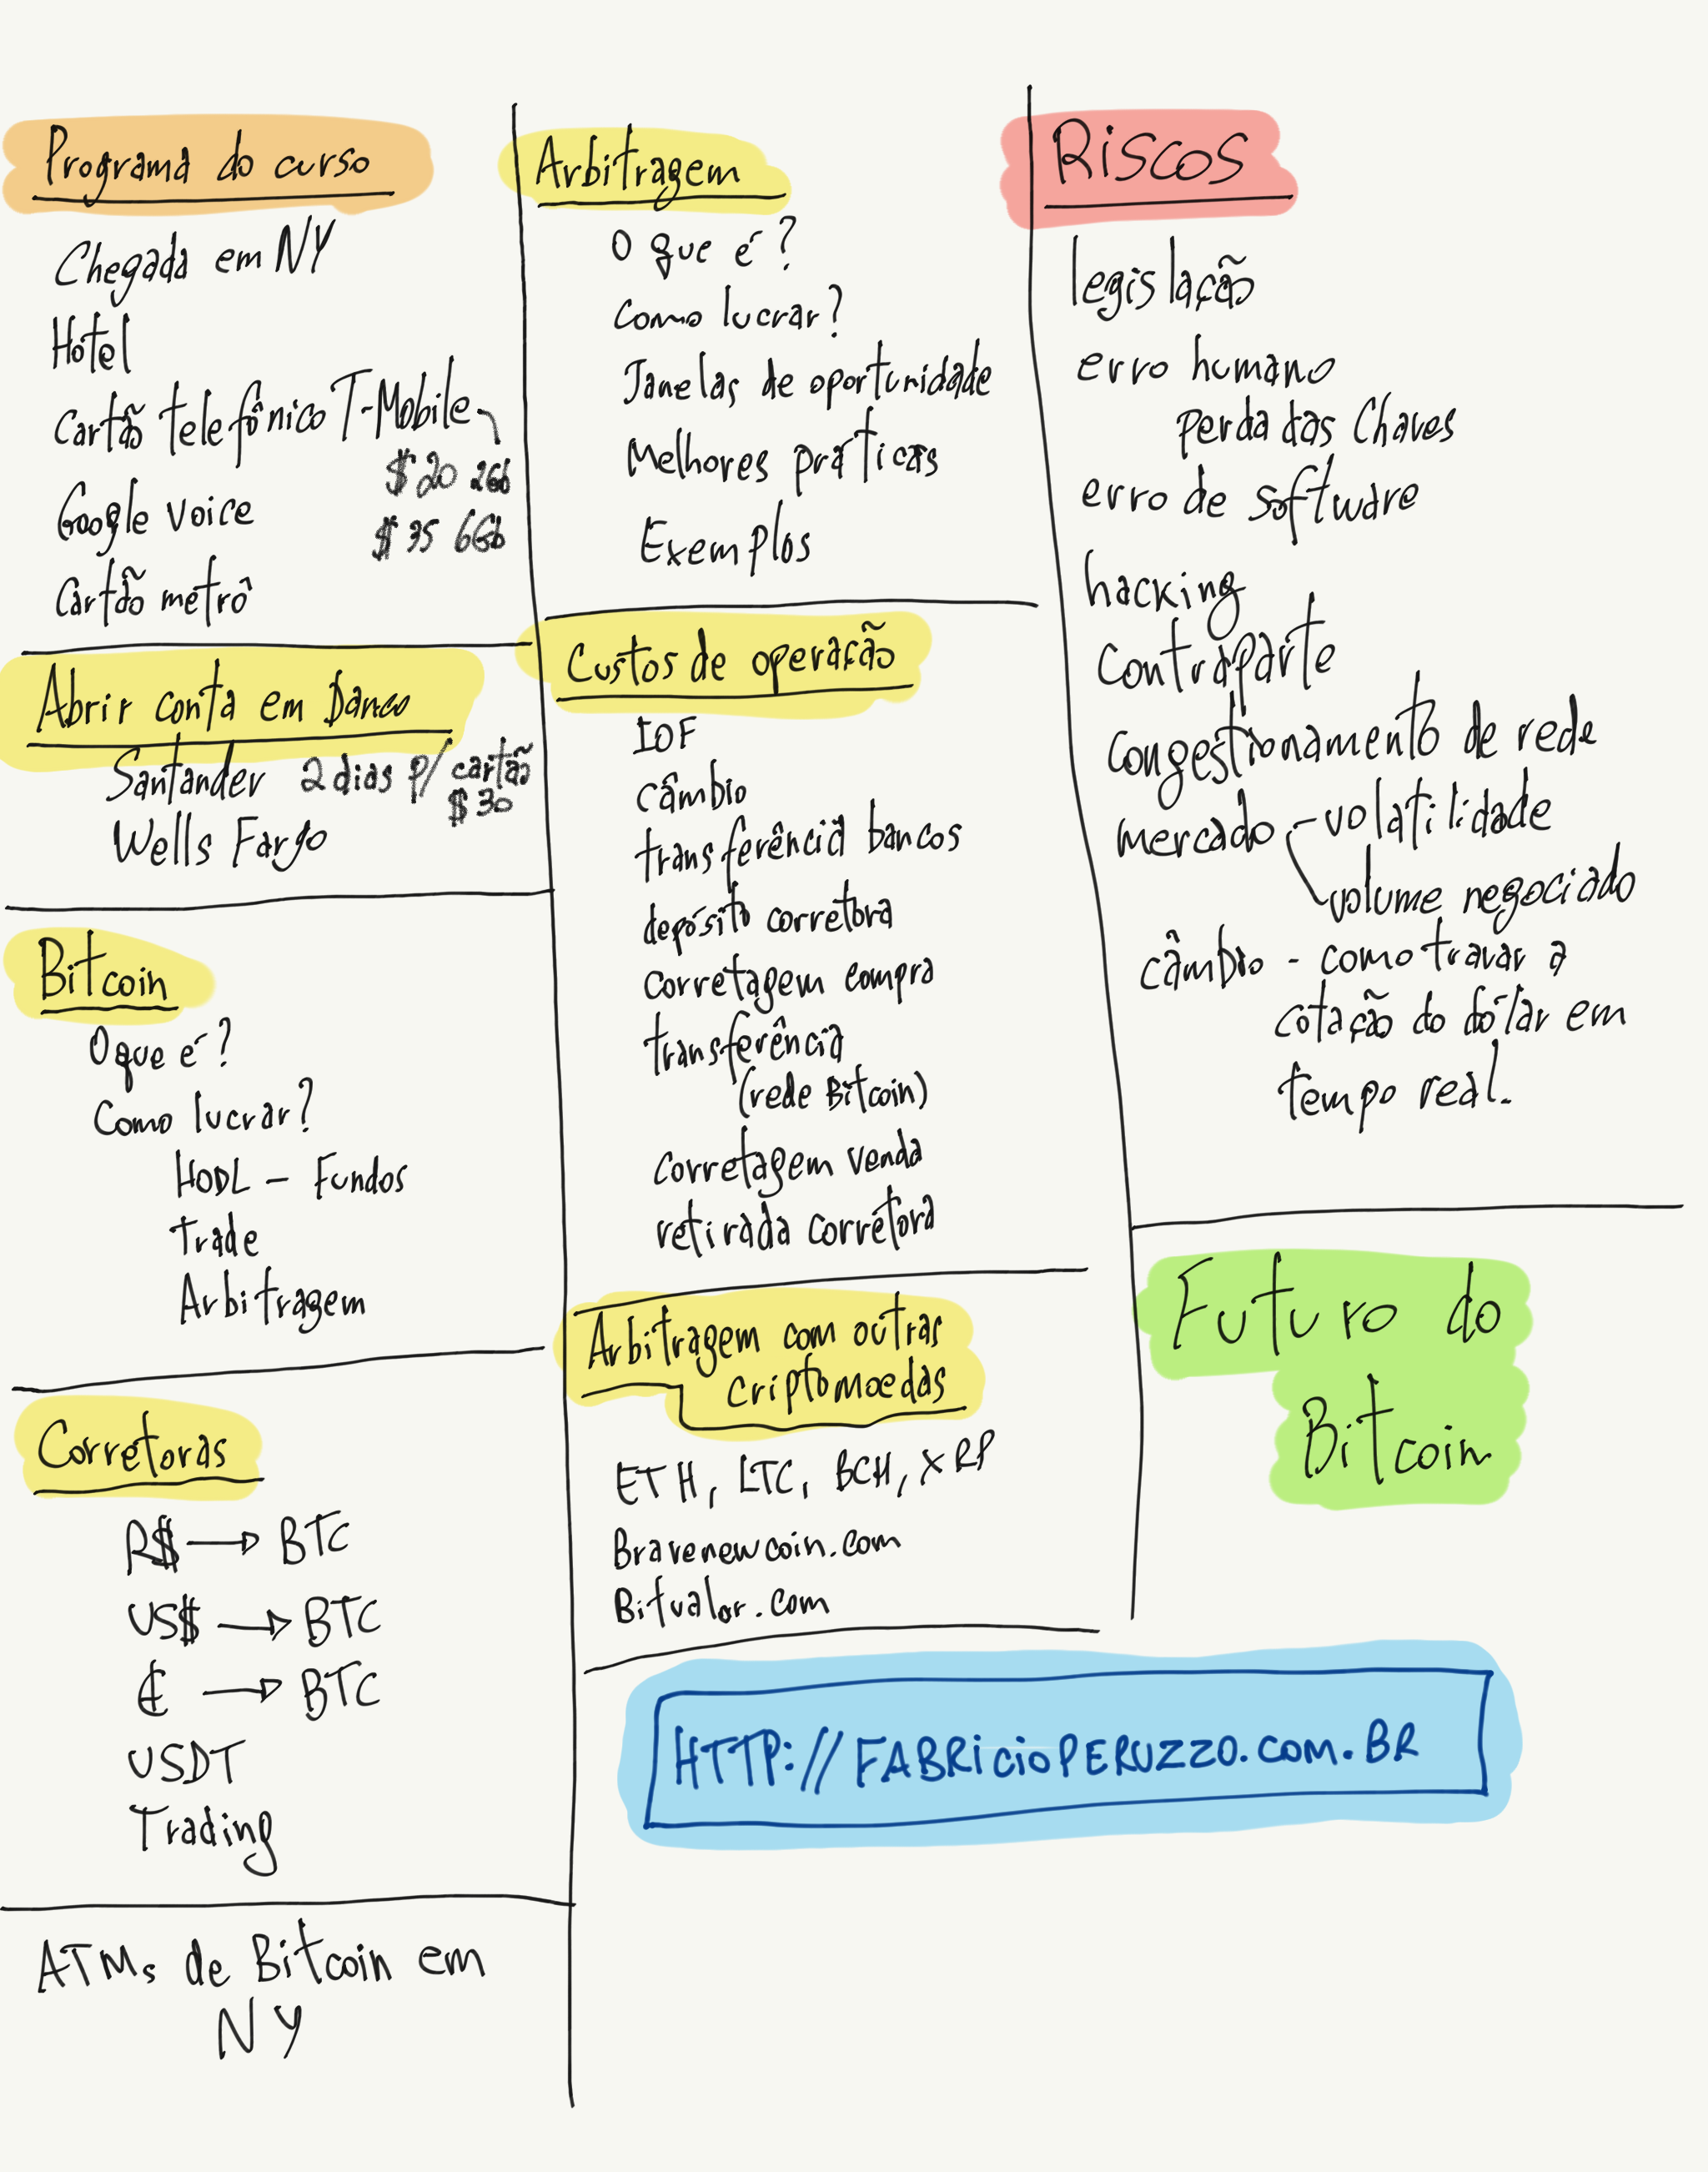 Programa do curso
Chegada em NY
Hotel
Cartão telefônico T-Mobile
$20 2Gb
Google voice
$35 6Gb
Cartão metrô
Abrir conta em Banco
Santander 2 dias p/ cartão
$30
Wells Fargo
Bitcoin
O que é?
Como lucrar?
HODL - Fundos
Trade
Arbitragem
Corretoras
R$ → BTC
US$ → BTC
₡ → BTC
USDT
Trading
ATMs de Bitcoin em
NY
Arbitragem
O que é?
Como lucrar?
Janelas de oportunidade
Melhores práticas
Exemplos
Custos de operação
IOF
câmbio
transferência bancos
depósito corretora
corretagem compra
transferência
(rede Bitcoin)
corretagem venda
retirada corretora
Arbitragem com outras
criptomoedas
ETH, LTC, BCH, XRP
Bravenewcoin.com
Bitvalor.com
Riscos
legislação
erro humano
perda das chaves
erro de software
hacking
contraparte
congestionamento de rede
mercado - volatilidade
volume negociado
câmbio - como travar a
cotação do dólar em
tempo real.
Futuro do
Bitcoin
HTTP://FABRICIOPERUZZO.COM.BR